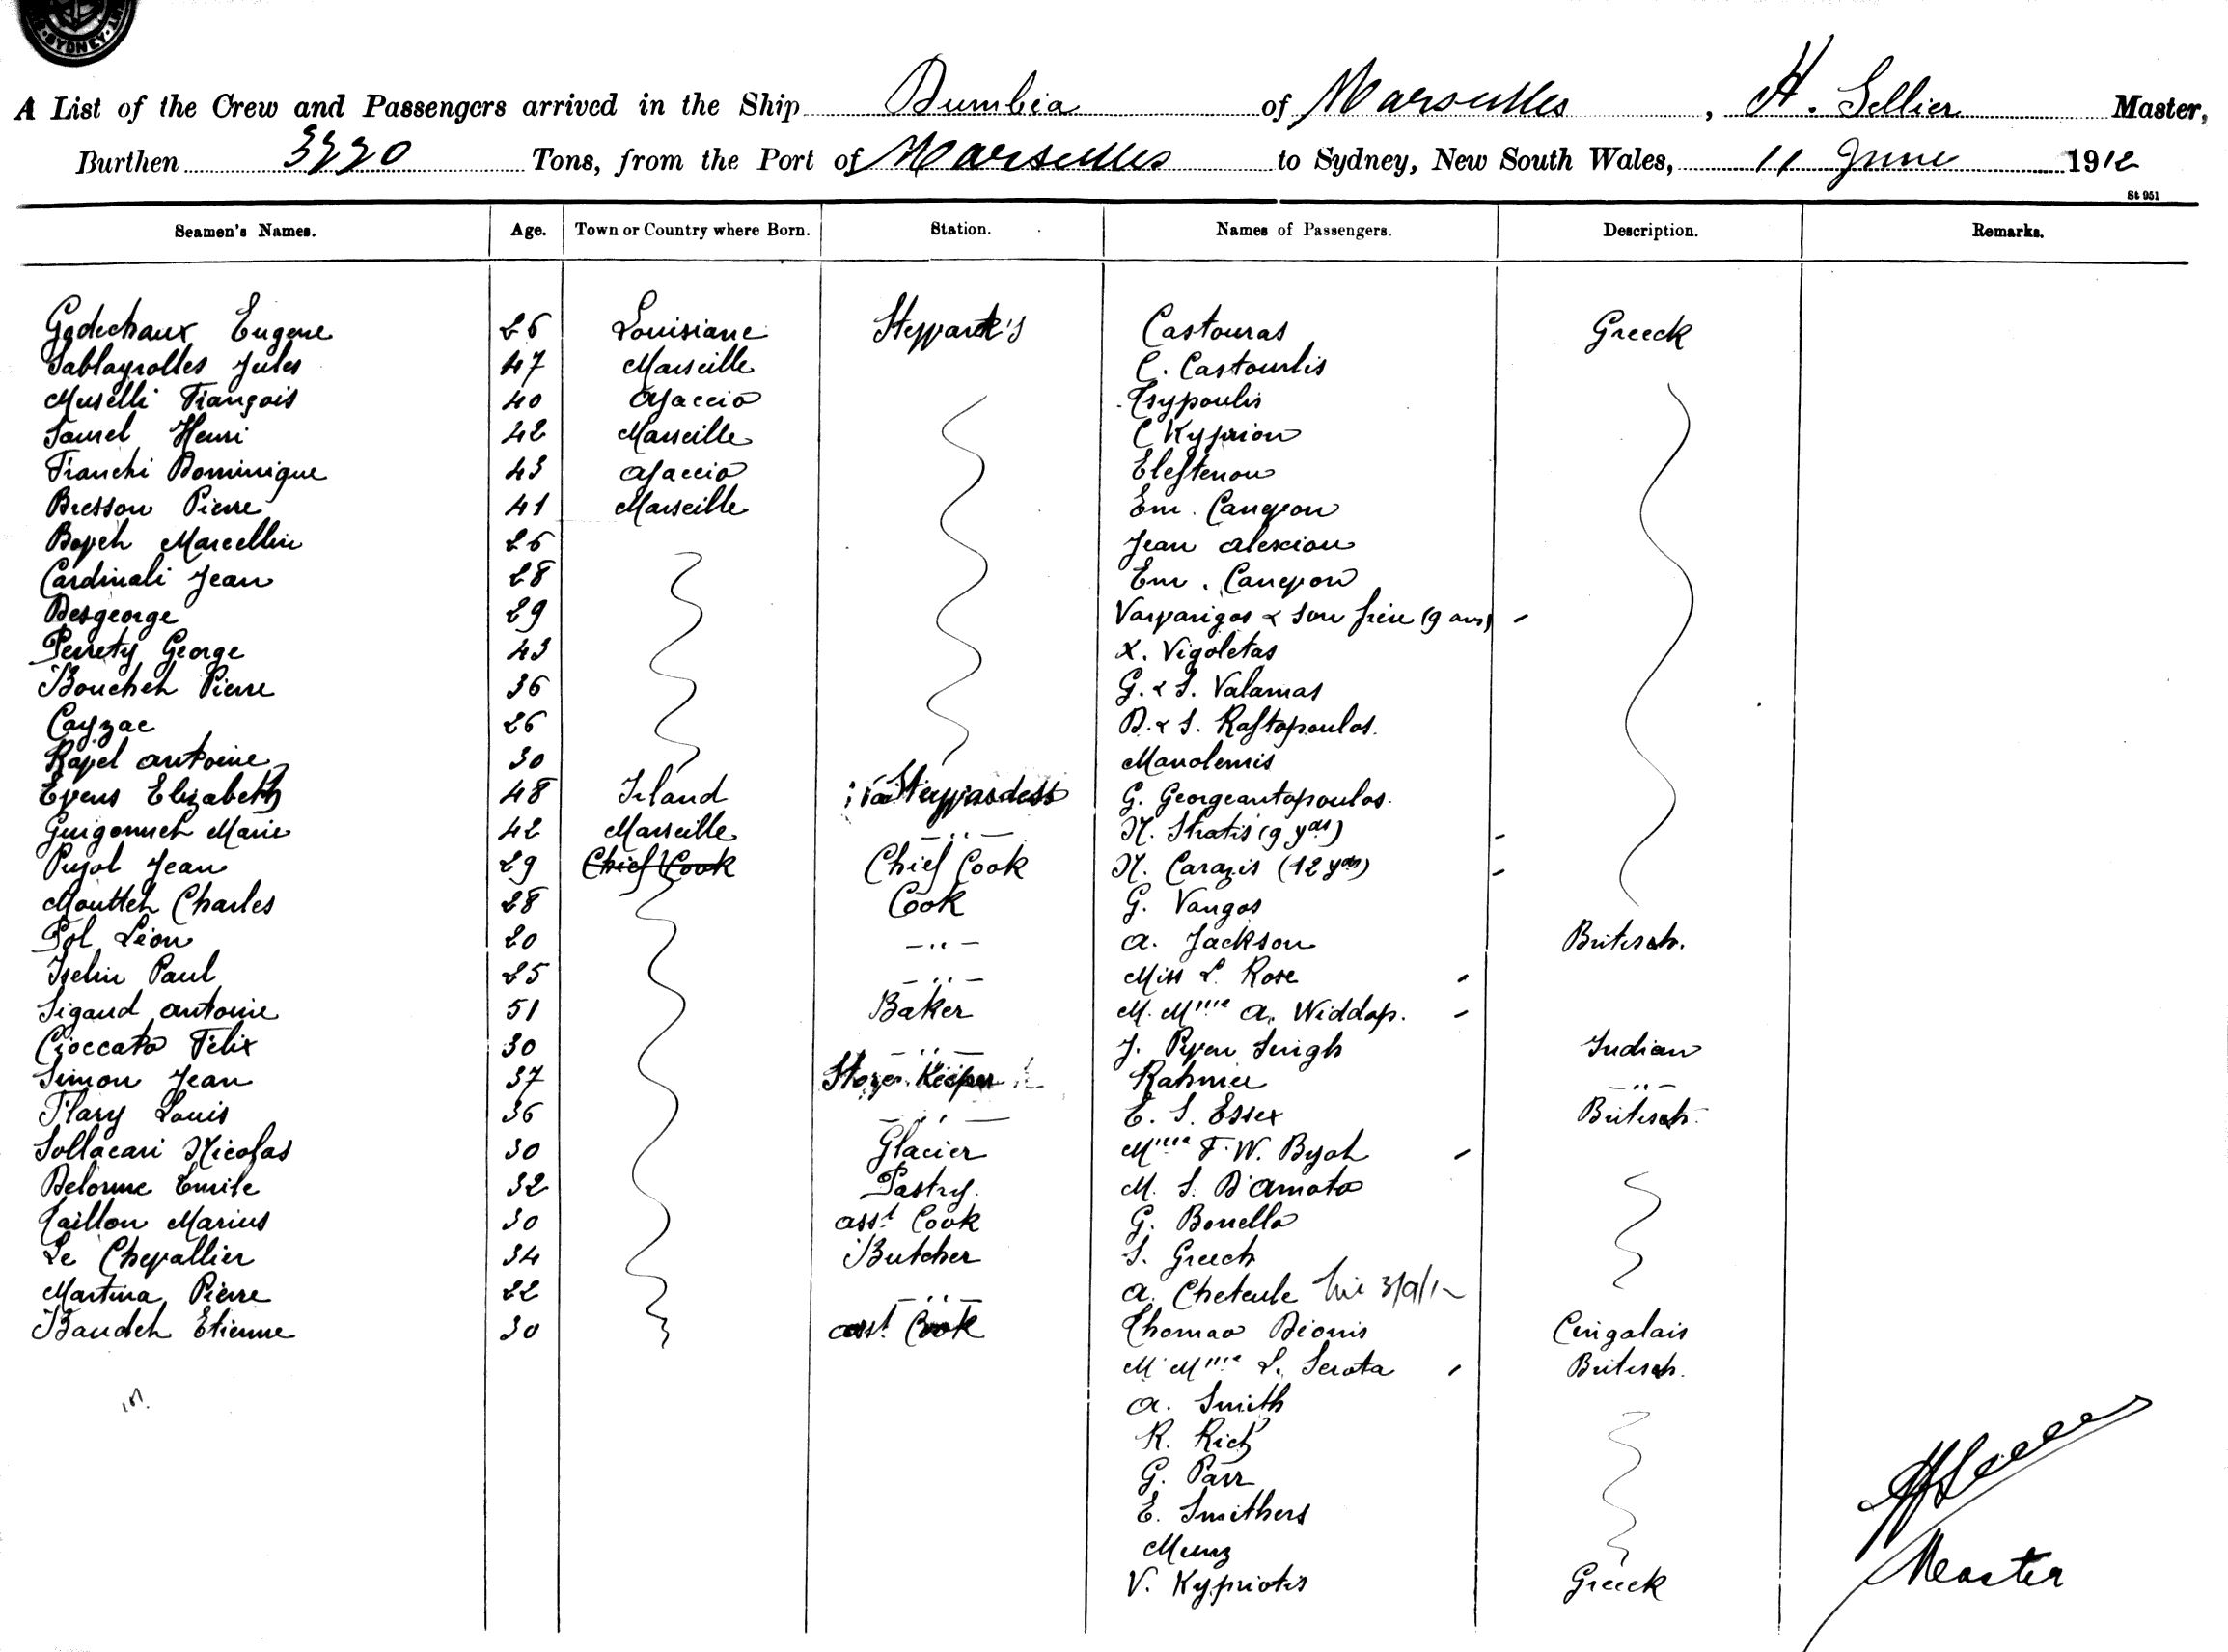 SYDNEY
A List of the Crew and Passengers arrived in the Ship Dumbea of Marseilles, H. Sellier Master,
Burthen Tons, from the Port of Marseilles to Sydney, New South Wales, 11 June 1912
St 951
Seamen's Names. Age. Town or Country where Born. Station. Names of Passengers. Description. Remarks.
Godechaux Eugene 26 Louisiane Steward's Castouras Greeck
Sablayrolles Jules 47 Marseille C. Castourlis
Muselli François 40 Ajaccio Tsypoulis
Saurel Henri 42 Marseille C Kyprion
Franchi Dominique 43 Ajaccio Eleftenou
Bresson Pierre 41 Marseille Em. Canevou
Marcellin 26 Jean Alexiou
Cardinali Jean 28 Em. Canevou
Desgeorge 29 Varvarigos & son frère (9 ans)
Perrety George 43 X. Vigoletas
Bouchet Pierre 36 G. & S. Valamas
Cayzac 26 D. & S. Raftopoulos.
Ravel Antoine 30 Manolemis
Evens Elizabeth 48 Irland Stewardess G. Georgeantopoulos.
Guigonnet Marie 42 Marseille -..- N. Stratis (9 yrs)
Pujol Jean 29 Chief Cook Chief Cook N. Carazis (12 yrs)
Mouttet Charles 28 Cook G. Vangos
Pol Léon 20 -..- A. Jackson Britisch.
Iselin Paul 25 -..- Miss L. Rose
Sigaud Antoine 51 Baker M. Mme A. Widdop.
Cioccato Félix 30 -..- J. Singh Indian
Simon Jean 37 Store Keeper Rahmee -..-
Flary Louis 36 -..- E. S. Essex Britisch.
Sollacari Nicolas 30 Glacier Mme F. W.
Delorme Emile 32 Pastry. M. S. D'Amato
Taillon Marius 30 Asst Cook G. Bonello
Le Chevallier 34 Butcher S. Greech
Martina Pierre 22 -..- A. Cheteule
Baudet Etienne 30 asst Cook Thomas Dionis Cingalais
M. Mme L. Serota Britisch.
A. Smith
R. Rich
G. Parr
E. Smithers
Munz
V. Kypriotis Greeck
Master